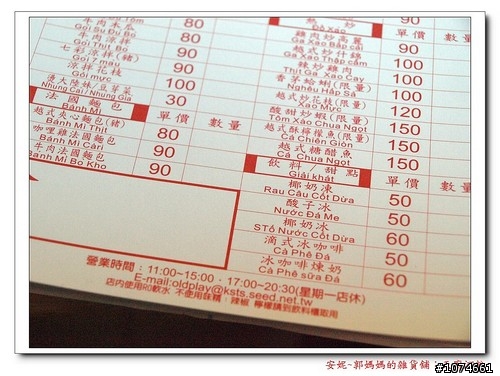 Gỏi Tôm 80
牛肉木瓜
Gỏi Su Đủ Bò 80
牛肉涼拌
Gỏi Thịt Bò 90
七彩涼拌(豬)
Gỏi 7 màu 90
涼拌花枝
Gỏi mực 100
燙大陸妹/豆芽菜
Nhung Cai / Nhung Gia 30
法國麵包 單價 數量
Bánh Mì
越式夾心麵包(豬)
Bánh Mì Thịt 80
咖哩雞法國麵包
Bánh Mì Càri 90
牛肉法國麵包
Bánh Mì Bò Kho 90
熱炒 單價 數量
Đồ Xào
雞肉炒高麗
Ga Xào Bắp cải 90
越式炒什錦
Ga Xào Thập cẩm 100
辣炒雞肉
Thịt Ga Xào Cay 100
香茅蛤蜊(限量)
Nghêu Hấp Sả 100
越式炒花枝(限量)
Xào Mực 120
酸甜炒蝦(限量)
Tôm Xào Chua Ngọt 150
越式酥檸檬魚(限量)
Cá Chiên Giòn 150
越式糖醋魚
Cá Chua Ngọt 150
飲料/甜點 單價 數量
Giải khát
椰奶凍
Rau Câu Cốt Dừa 50
酸子冰
Nước Đá Me 50
椰奶凍
STố Nước Cốt Dừa 60
滴式冰咖啡
Cà Phê Đá 50
冰咖啡煉奶
Cà Phê sữa Đá 60
營業時間：11:00~15:00．17:00~20:30(星期一店休)
E-mail:oldplay@ksts.seed.net.tw
店內使用RO軟水 不使用味精．辣椒 檸檬請到飲料櫃取用
安妮-郭媽媽的雜貨舖
#1074661